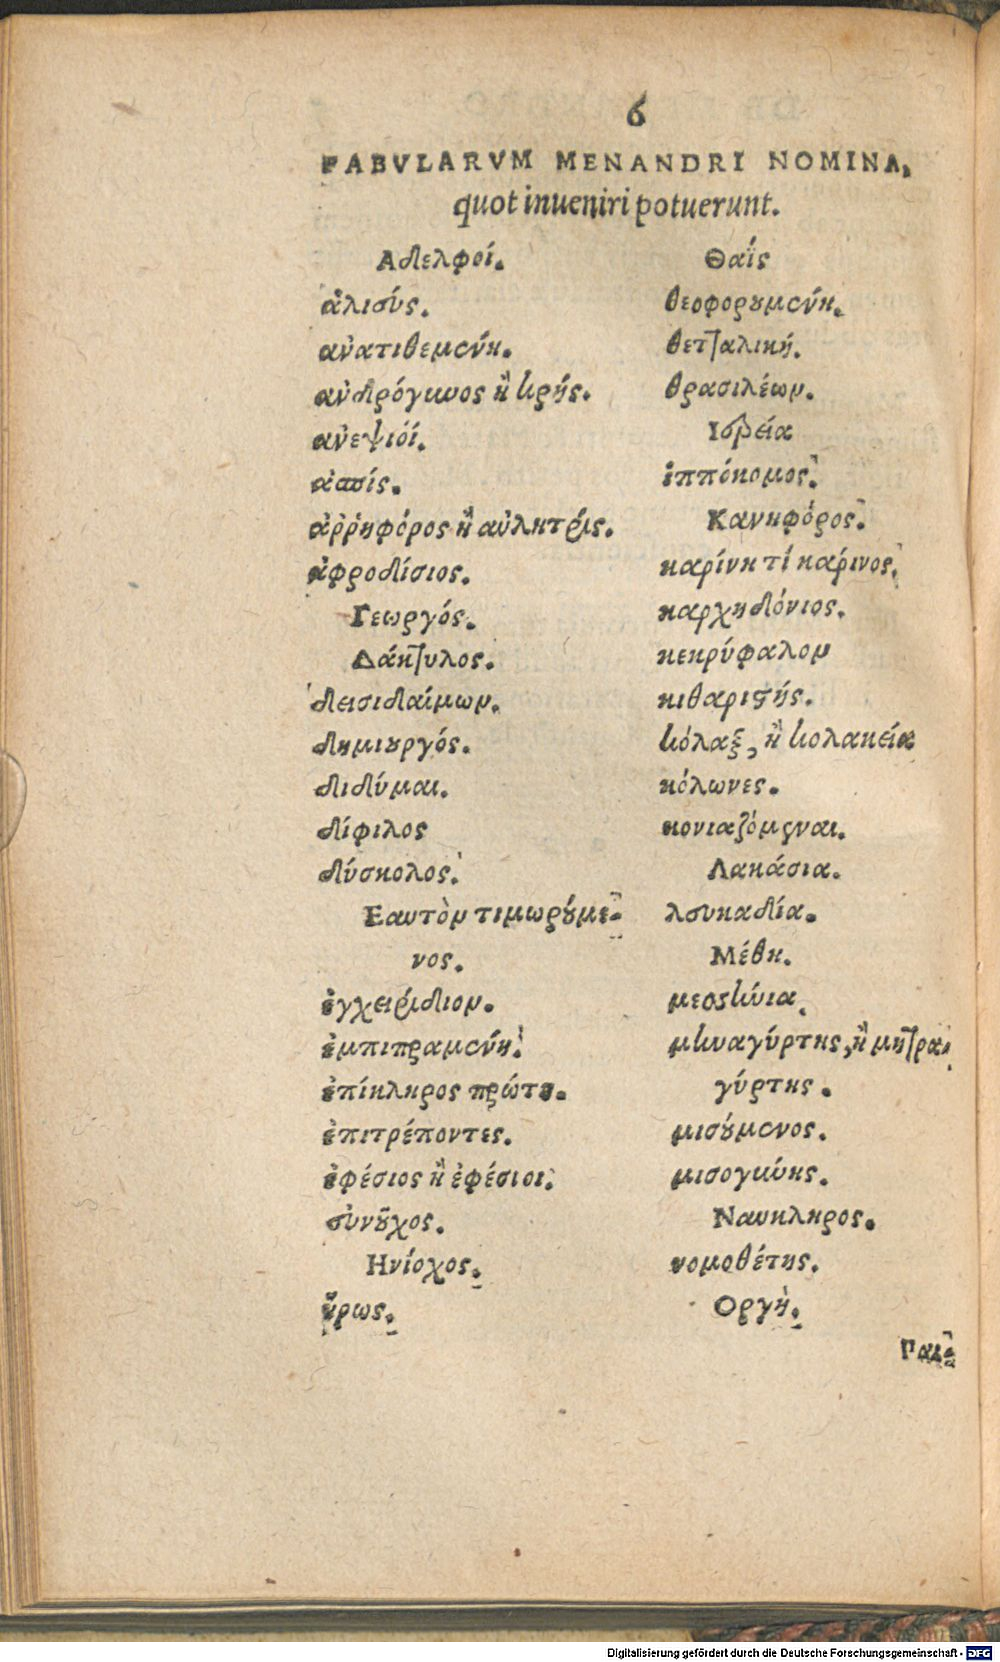 6
FABVLARVM MENANDRI NOMINA,
quot inueniri potuerunt.
Αδελφοί.
ἁλιεύς.
ἀνατιθεμένη.
ἀνδρόγυνος ἢ κρής.
ἀνεψιόί.
ἀσπίς.
ἀῤῥηφόρος ἢ αὐλητρίς.
ἀφροδίσιος.
Γεωργός.
Δάκτυλος.
δεισιδαίμων.
δημιουργός.
διδύμαι.
δίφιλος
δύσκολος.
Εαυτὸν τιμωρούμε-
νος.
ἐγχειρίδιον.
ἐμπιπραμένη.
ἐπίκληρος πρώτη.
ἐπιτρέποντες.
ἐφέσιος ἢ ἐφέσιοι.
εὐνοῦχος.
Ηνίοχος.
ἥρως.
Θαΐς
θεοφορουμένη.
θετταλική.
θρασιλέων.
Ιέρεία
ἱππόκομος.
Κανηφόρος.
καρίνη τί καρίνος.
καρχηδόνιος.
κεκρύφαλον
κιθαριστής.
κόλαξ, ἢ κολακεία
κόλωνες.
κονιαζόμεναι.
Λακάσια.
λευκαδία.
Μέθη.
μεσσκυνια.
μηναγύρτης, ἢ μητρα-
γύρτης.
μισούμενος.
μισογύνης.
Ναυκληρος.
νομοθέτης.
Οργὴ.
Παι-
Digitalisierung gefördert durch die Deutsche Forschungsgemeinschaft - DFG